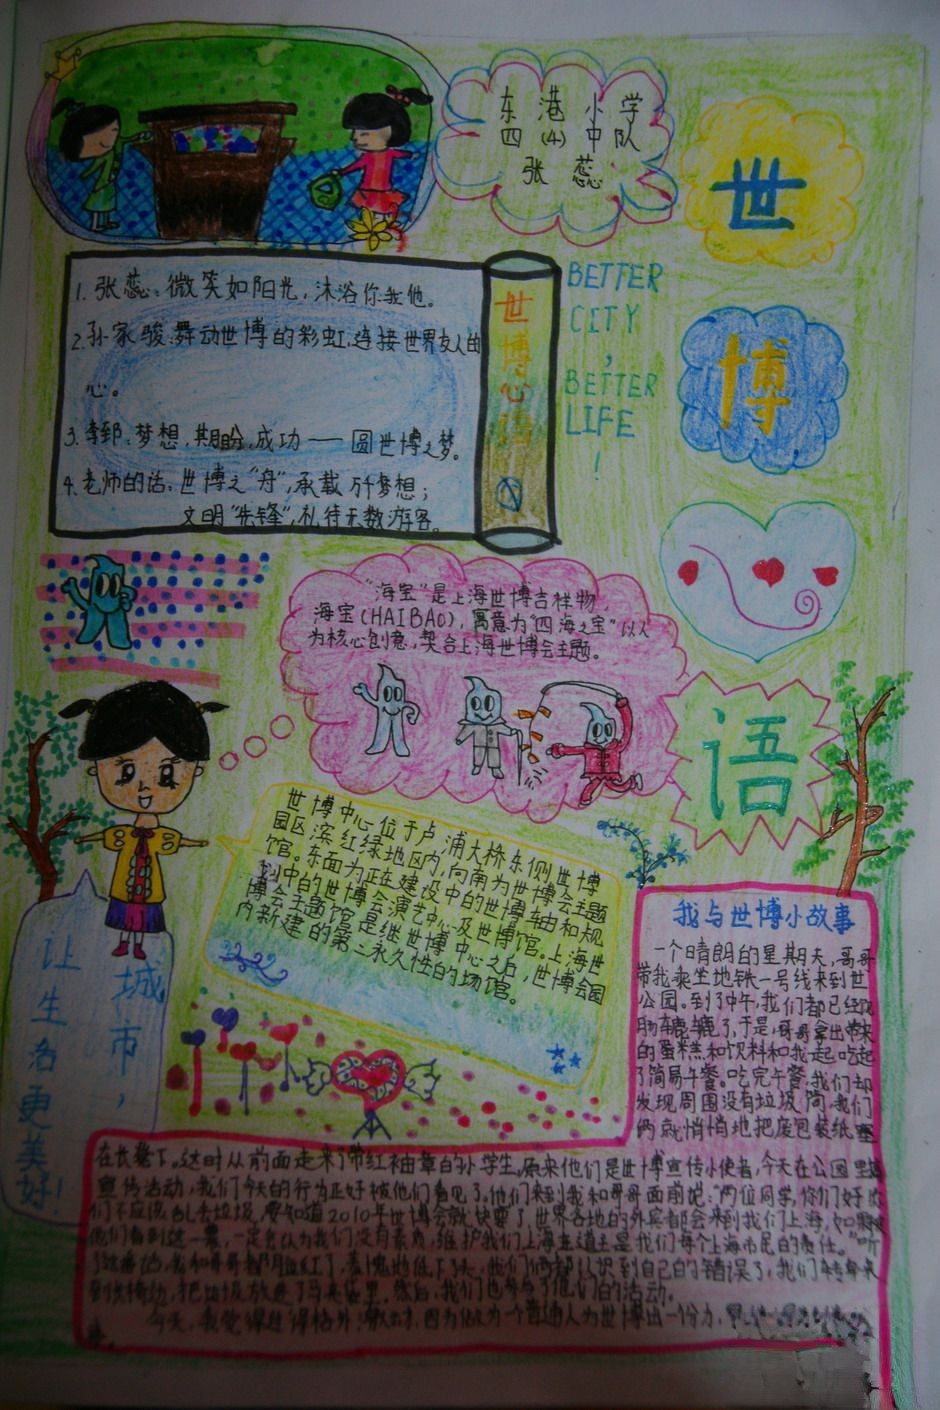 东港小学
四(4)中队
张蕊
世
博
语
1. 张蕊:微笑如阳光,沐浴你我他。
2.孙家骏:舞动世博的彩虹,连接世界友人的
心。
3.李郅:梦想,期盼,成功——圆世博之梦。
4.老师的话:世博之“舟”,承载万千梦想;
文明“先锋”,礼待无数游客。
世博心语
BETTER
CITY
,
BETTER
LIFE
!
“海宝”是上海世博吉祥物,
海宝(HAIBAO),寓意为“四海之宝”以人
为核心创意,契合上海世博会主题。
世博中心位于卢浦大桥东侧世博
园区滨红绿地区内,向南为世博会主题
馆。东面为正在建设中的世博轴和规
划中的世博会演艺中心及世博馆。上海世
博会主题馆是继世博中心之后,世博会园
内新建的第二永久性的场馆。
城市,
让生活更美好!
我与世博小故事
一个晴朗的星期天,哥哥
带我乘坐地铁一号线来到世
公园。到了中午,我们都已经饥
肠辘辘了,于是,哥哥拿出带来
的蛋糕和饮料和我一起吃起
了简易午餐。吃完午餐,我们却
发现周围没有垃圾筒,我们
俩就悄悄地把废包装纸
在长凳下。这时从前面走来了带红袖章的小学生,原来他们是世博宣传小使者,今天在公园里
宣传活动,我们今天的行为正好被他们看见了。他们来到我和哥哥面前说:“两位同学,你们好
们不应该乱丢垃圾,要知道2010年世博会就快要了,世界各地的外宾都会来到我们上海,如果
他们看到这一幕,一定会认为我们没有素质,维护我们上海主道主是我们每个上海市民的责任。”听
了这番话,我和哥哥都脸红了,羞愧地低下了头,我们俩都认识到自己的错误了,我们转身来
到长椅边,把垃圾放进了马夹袋里。然后,我们也参与了他们的活动。
今天,我觉得过得格外,因为做为一个普通人为世博出一份力,